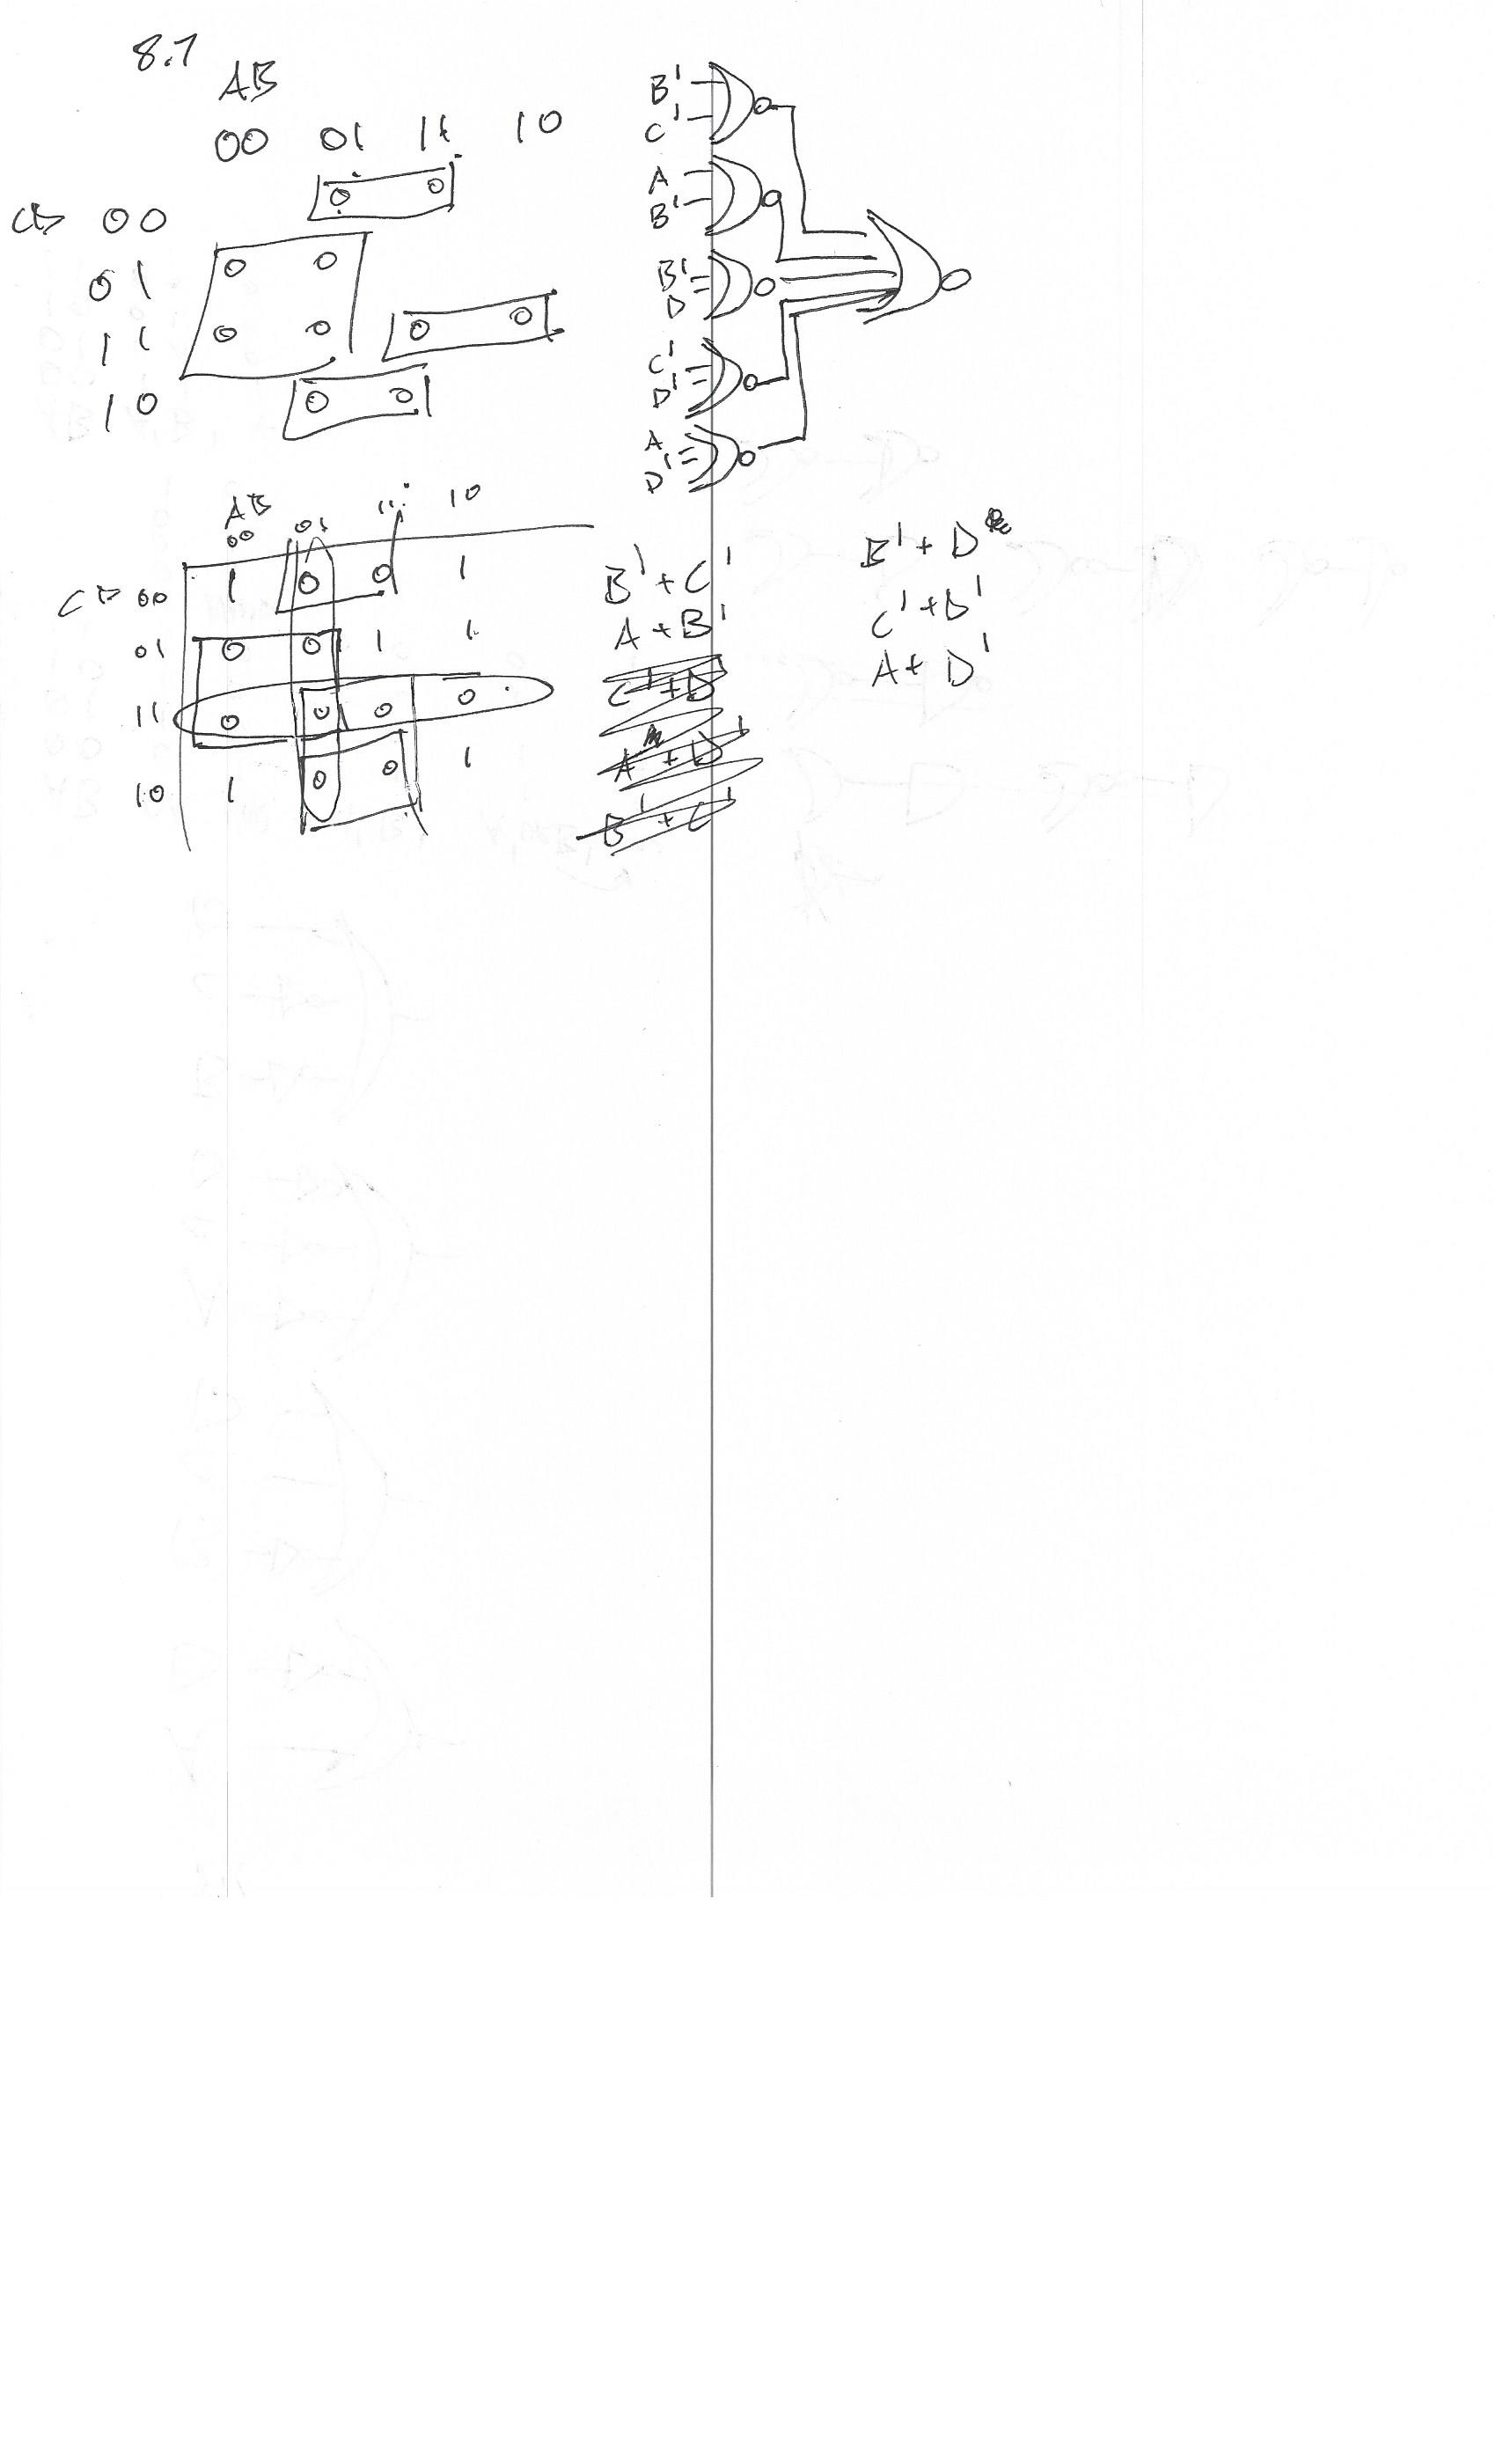 8.7
AB
00 01 11 10
CD 00
0 0
01
0 0
11
0 0
0 0
10
0 0
B'
C'
A
B'
B'
D
C'
D'
A
D'
AB
00 01 11 10
CD 00 1 0 0 1
01 0 0 1 1
11 0 0 0 0
10 1 0 0 1
B'+C'
A+B'
C'+D
A+D'
B'+C'
B'+D
C'+D'
A+D'